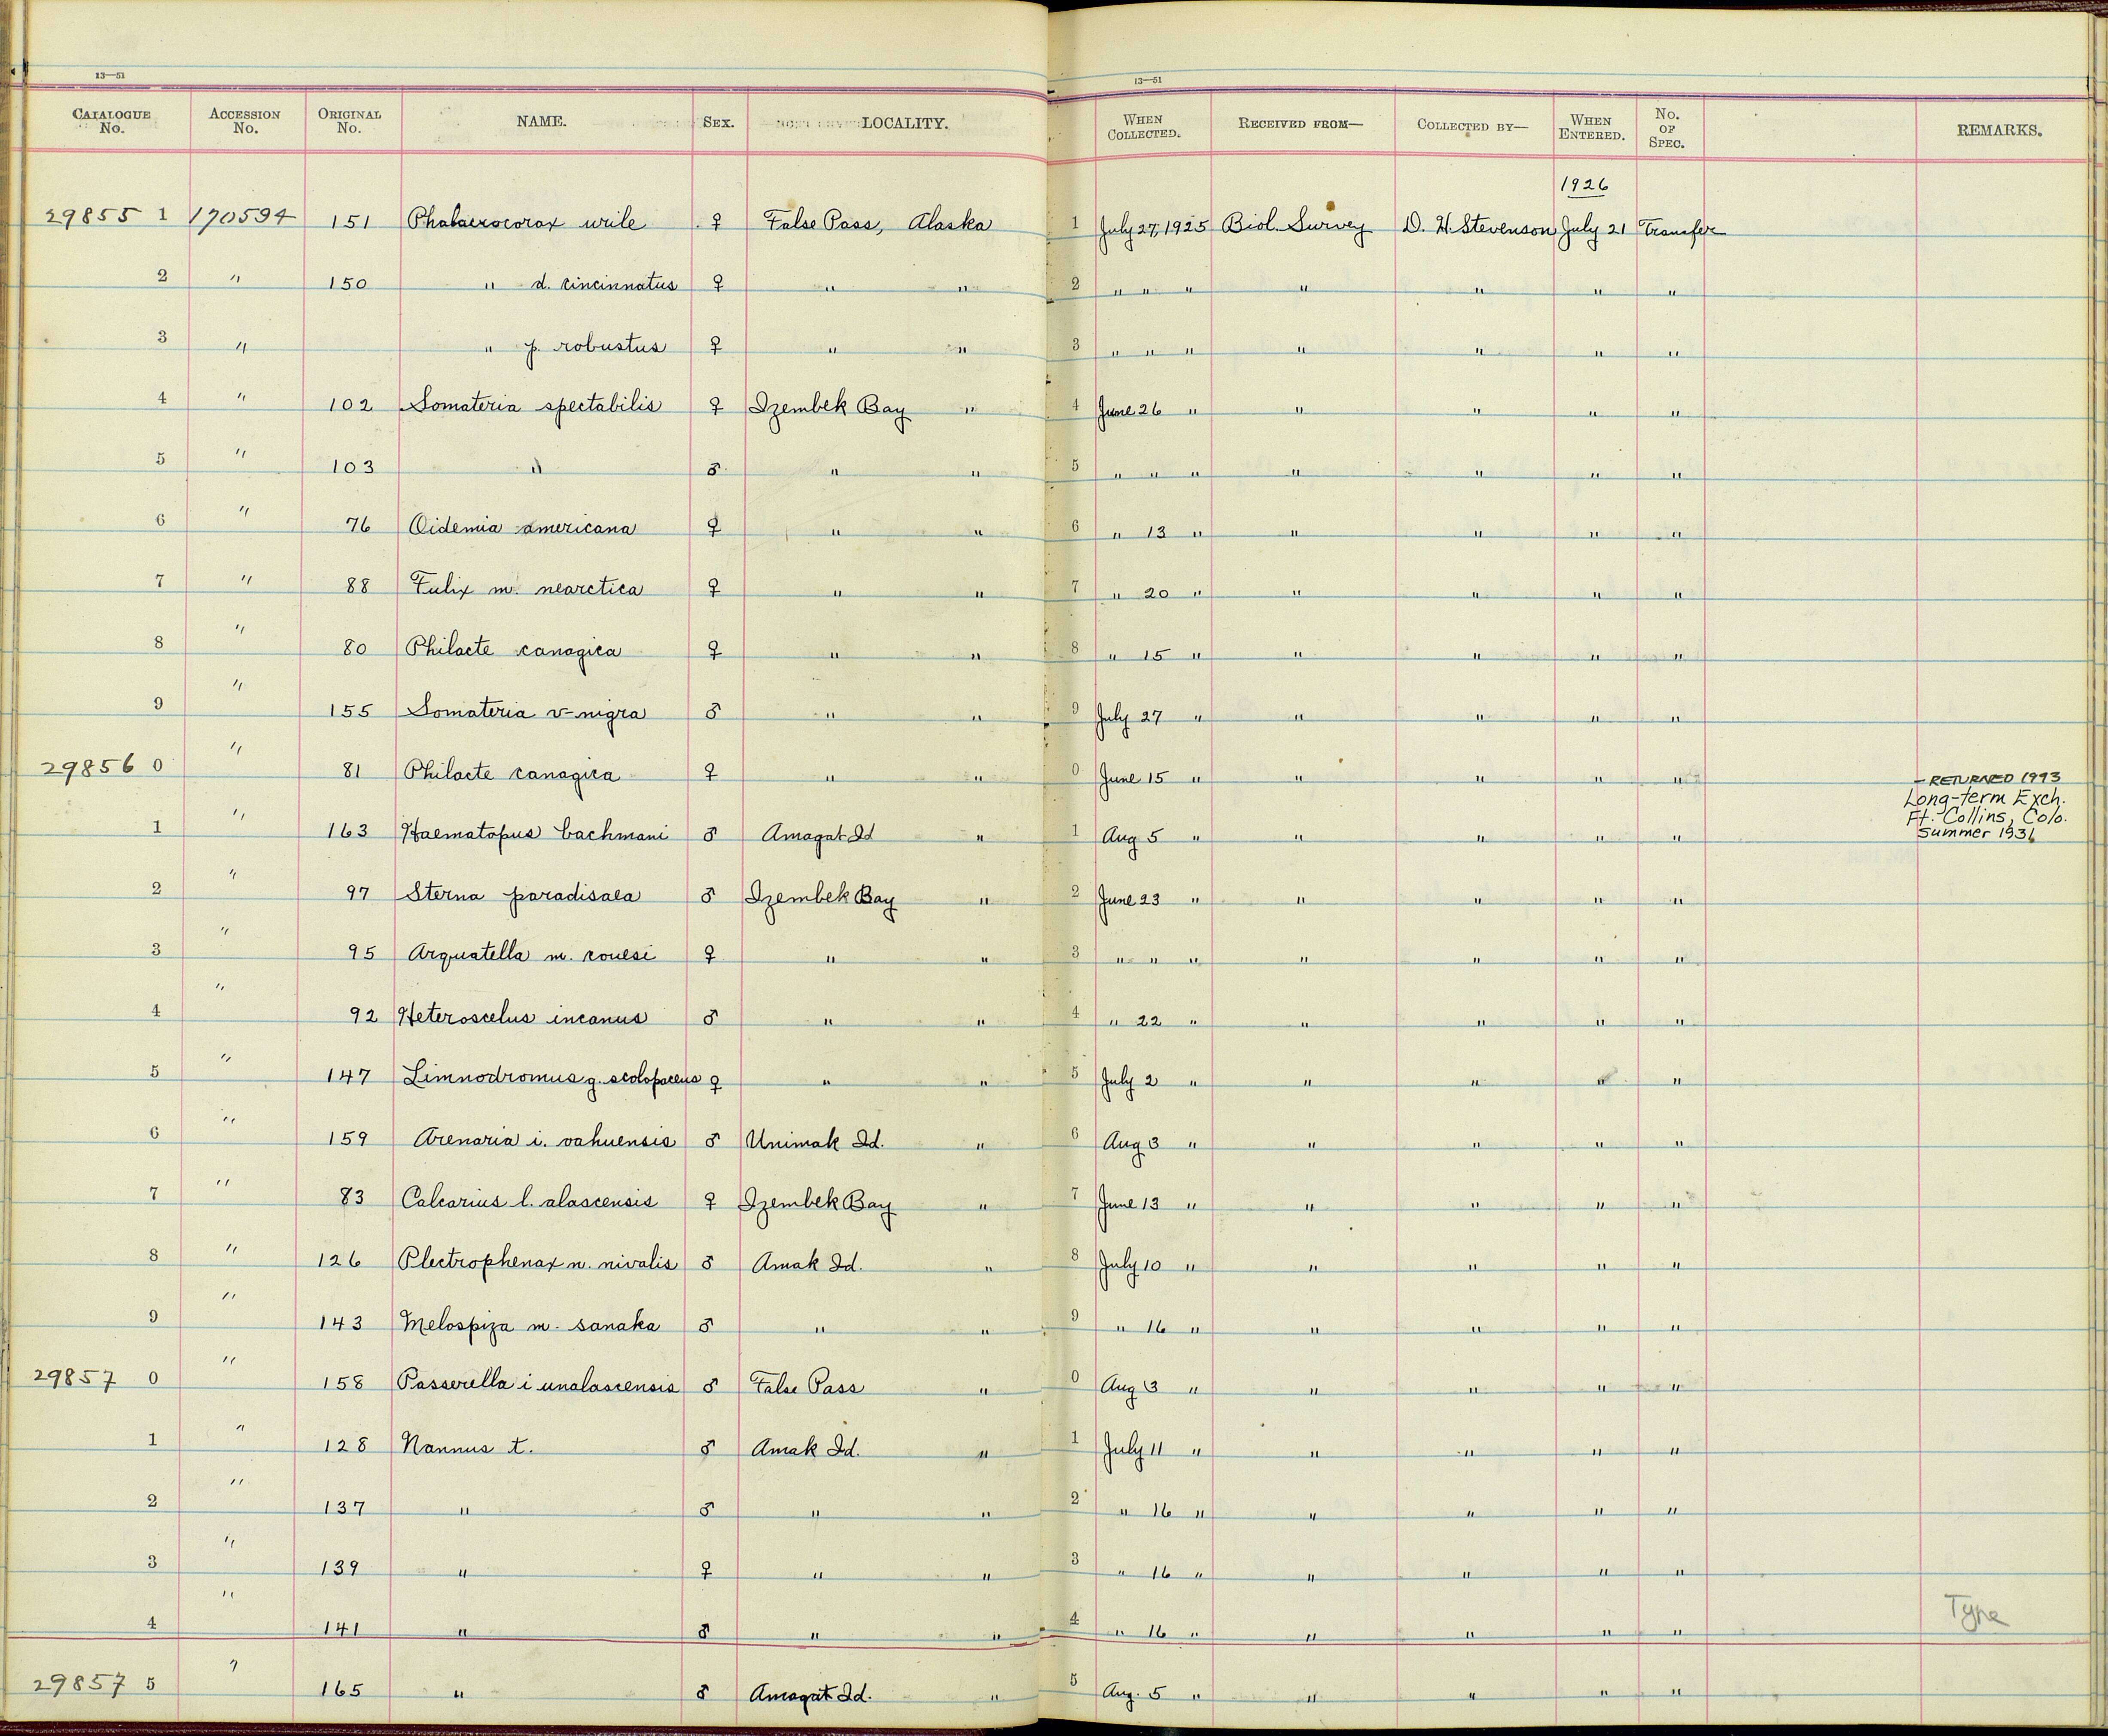 13—51
13—51
CATALOGUE No. ACCESSION No. ORIGINAL No. NAME. SEX. LOCALITY. WHEN COLLECTED. RECEIVED FROM— COLLECTED BY— WHEN ENTERED. No. OF SPEC. REMARKS.
1926
29855 1 170594 151 Phalacrocorax urile ♀ False Pass, Alaska 1 July 27, 1925 Biol. Survey D. H. Stevenson July 21 Transfer
2 " 150 " d. cincinnatus ♀ " " 2 " " " " " " "
3 " " p. robustus ♀ " " 3 " " " " " " "
4 " 102 Somateria spectabilis ♀ Izembek Bay " 4 June 26 " " " " "
5 " 103 " ♂ " " 5 " " " " " " "
6 " 76 Oidemia americana ♀ " " 6 " 13 " " " " "
7 " 88 Fulix m. nearctica ♀ " " 7 " 20 " " " " "
8 " 80 Philacte canagica ♀ " " 8 " 15 " " " " "
9 " 155 Somateria v-nigra ♂ " " 9 July 27 " " " " "
29856 0 " 81 Philacte canagica ♀ " " 0 June 15 " " " " " - RETURNED 1993
Long-term Exch.
Ft. Collins, Colo.
Summer 1931
1 " 163 Haematopus bachmani ♂ Amagat Id " 1 Aug 5 " " " " "
2 " 97 Sterna paradisaea ♂ Izembek Bay " 2 June 23 " " " " "
3 " 95 Arquatella m. couesi ♀ " " 3 " " " " " " "
4 " 92 Heteroscelus incanus ♂ " " 4 " 22 " " " " "
5 " 147 Limnodromus g. scolopaceus ♀ " " 5 July 2 " " " " "
6 " 159 Arenaria i. oahuensis ♂ Unimak Id. " 6 Aug 3 " " " " "
7 " 83 Calcarius l. alascensis ♀ Izembek Bay " 7 June 13 " " " " "
8 " 126 Plectrophenax n. nivalis ♂ Amak Id. " 8 July 10 " " " " "
9 " 143 Melospiza m. sanaka ♂ " " 9 " 16 " " " " "
29857 0 " 158 Passerella i unalascensis ♂ False Pass " 0 Aug 3 " " " " "
1 " 128 Nannus t. ♂ Amak Id. " 1 July 11 " " " " "
2 " 137 " ♂ " " 2 " 16 " " " " "
3 " 139 " ♀ " " 3 " 16 " " " " "
4 " 141 " ♂ " " 4 " 16 " " " " " Type
29857 5 " 165 " ♂ Amagat Id. " 5 Aug. 5 " " " " "